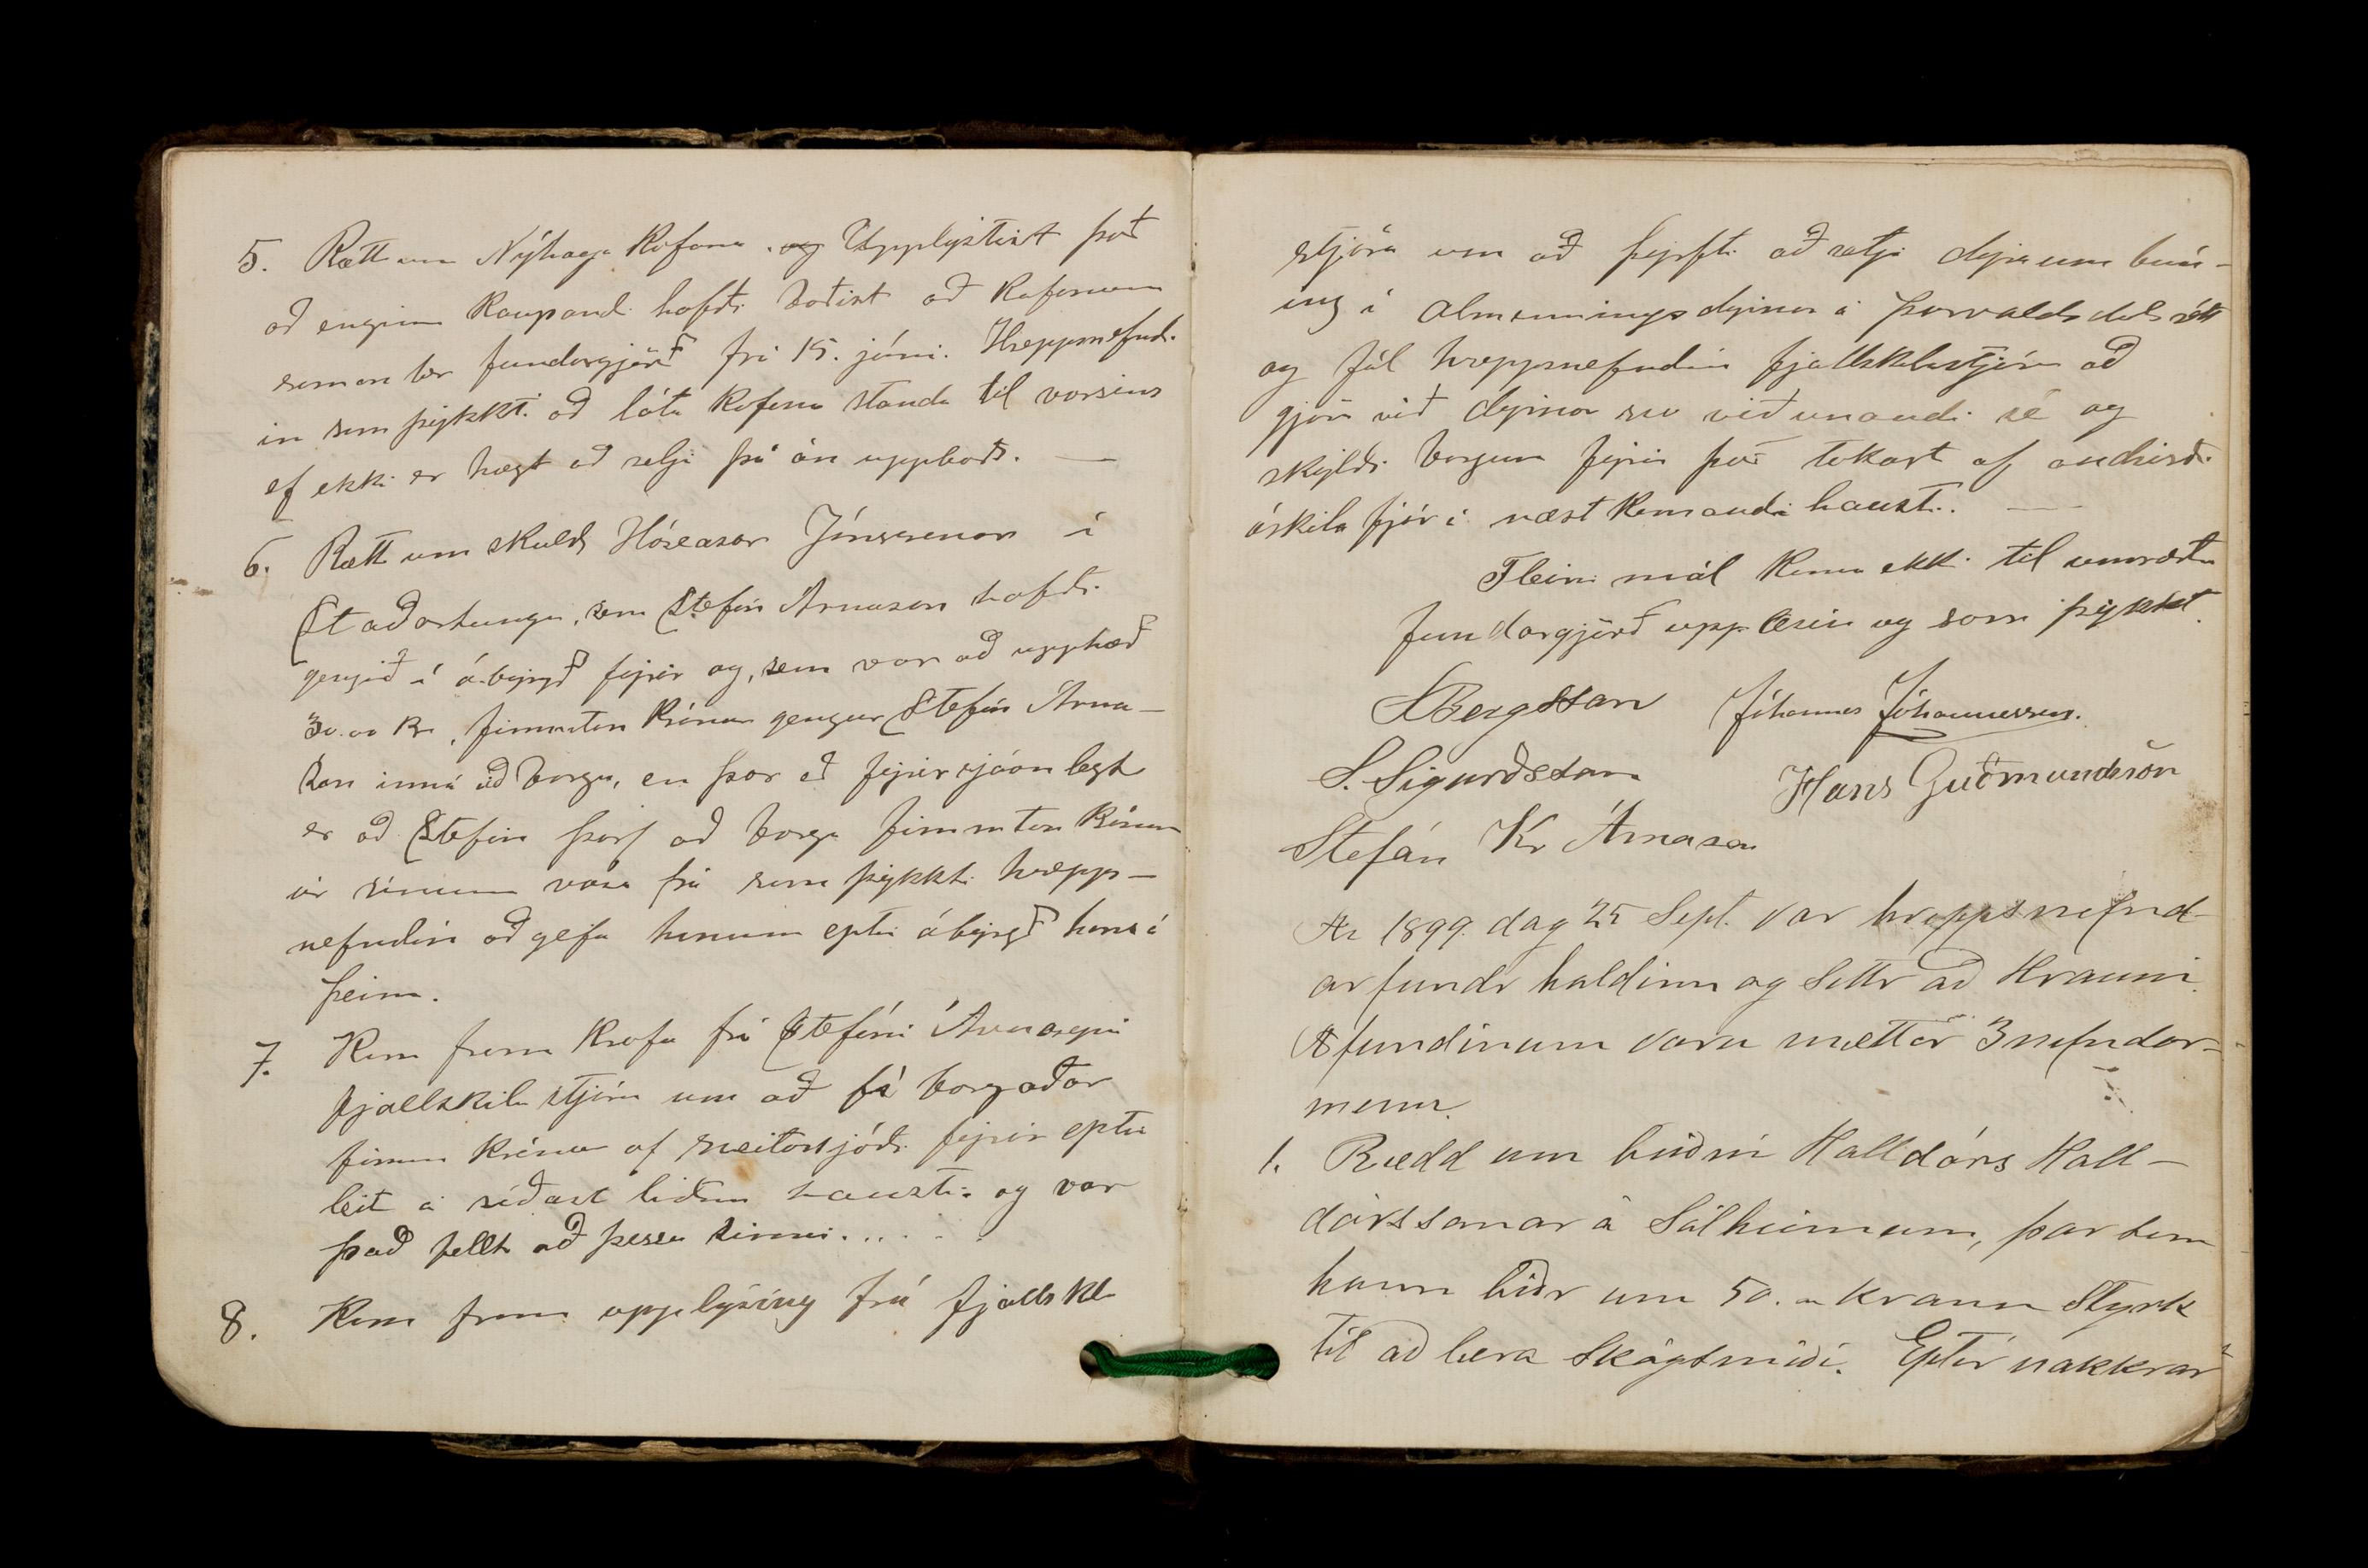 5. Rætt um Nýhaga kofana. og Upplystist það
að enginn kaupandi hafði boðist að kofunum
saman ber fundargjörð frá 15. júní. Hreppsnefnd-
in samþykkti að láta kofana standa til vorsins
ef ekki er hægt að selja þá án uppboðs. —
6. Rætt um skuld Hóseasar Jónssonar í
Staðartungu, sem Stefán Arnason hafði
gengið í ábyrgð fyrir og, sem var að upphæð
30.00 Kr, fimmtán Krónur gengur Stefán Arna-
son inná að borga, en þar eð fyrirsjáanlegt
er að Stefán þarf að borga fimmtán Krónur
úr sínum vasa þá samþykkti hrepps-
nefndin að gefa honum eptir ábyrgð hans á
þeim.
7. Kom fram krafa frá Stefáni Árnasyni
fjallskilastjóra um að fá borgaðar
fimm krónur af sveitarsjóði fyrir eptir
leit á síðast liðnu hausti og var
það fellt að þessu sinni.....
8. Kom fram upplýsing frá fjallskila
stjóra um að þyrfti að setja dyraum bún-
ing í Almenningsdyrnar á Þorvaldsdalsrétt
og fól hreppsnefndin fjallskilastjóra að
gjöra við dyrnar svo viðunandi sé og
skyldi borgun fyrir það takast af andvirði
óskila fjár í næstkomandi hausti. —
Fleiri mál komu ekki til umræðu
fundargjörð upplesin og samþykkt.
SBergsson Jóhannes Jóhannesson.
S. Sigurðsson Hans Guðmundsson
Stefán Kr Árnason
Ár 1899. dag 25 Sept. var hreppsnefnd-
arfundr haldinn og settr að Hrauni.
Á fundinum voru mættir 3 nefndar-
menn.
1. Rædd um beiðni Halldórs Hall-
dórssonar á Sólheimum, þar sem
hann biðr um 50. króna Styrk
til að læra Skógsmíði. Eptir nokkrar